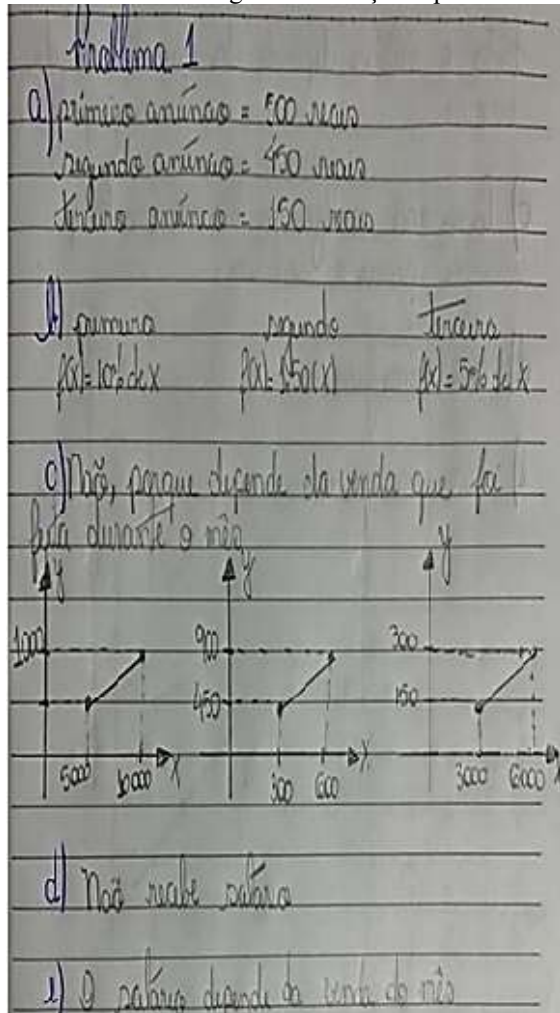 Problema 1
a) primeiro anúncio = 500 reais
segundo anúncio = 450 reais
terceiro anúncio = 150 reais
b) primeiro segundo terceiro
f(x) = 10% de x f(x) = 1,50(x) f(x) = 5% de x
c) Não, porque depende da venda que foi
feita durante o mês
y y y
1000 900 300
450 150
5000 10000 x 300 600 x 3000 6000
d) Não recebe salário
e) O salário depende da venda do mês